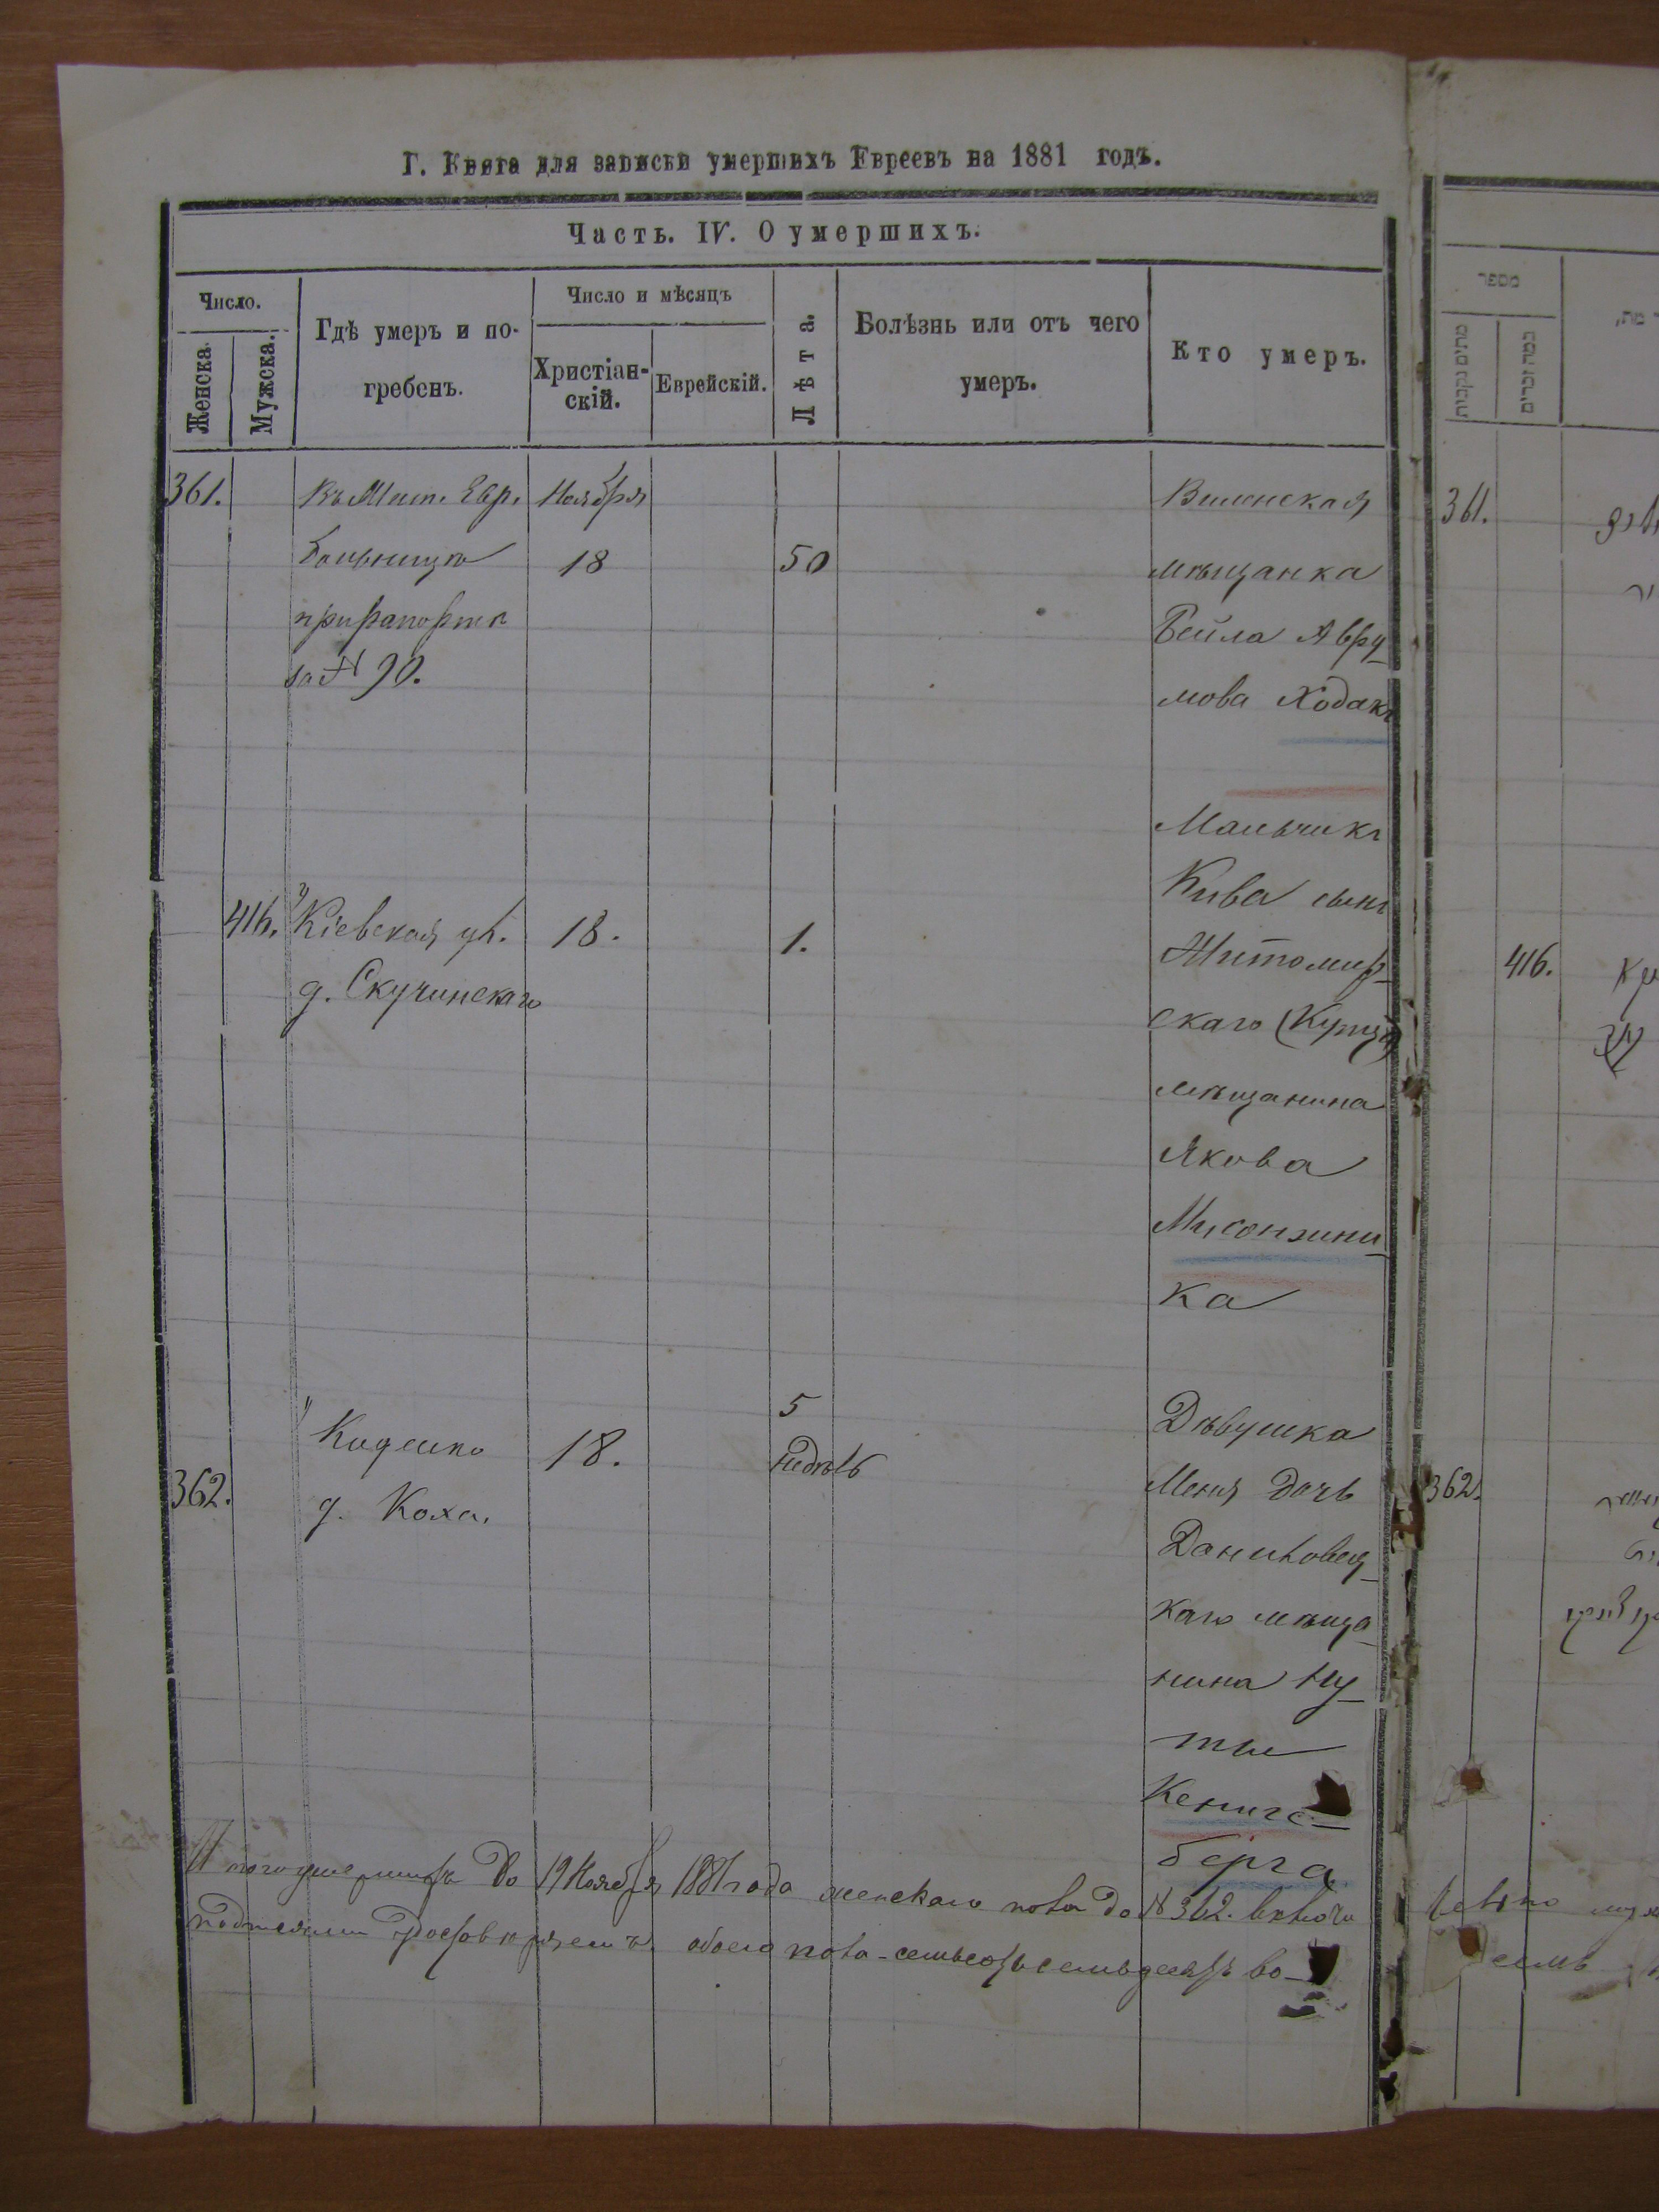 Г. Книга для записки умершихъ Евреевъ на 1881 годъ.
Часть. IV. О умершихъ.
Число.
Женска.
Мужска.
Гдѣ умеръ и по-
гребенъ.
Число и мѣсяцъ
Христіан-
скій.
Еврейскій.
Лѣта.
Болѣзнь или отъ чего
умеръ.
Кто умеръ.
361.
Въ Жит. Евр.
больницѣ
при рапортѣ
за № 90.
Ноября
18
50
Виленская
мѣщанка
Бейла Авру-
мова Ходакъ
416.
Кіевская ул.
д. Скучинскаго
18.
1.
Мальчикъ
Кива сынъ
Житомир-
скаго (Купца)
мѣщанина
Якова
ка
362.
д. Коха.
18.
5
недѣль
Дѣвушка
Меня дочь
каго мѣща-
нина Ну-
ты
Кенигс-
берга
Итого умершихъ до 19 Ноября 1881 года женскаго пола до № 362. включи
обоего пола - семьсотъ семьдесятъ во-
מספר
361.
416.
362.
семь